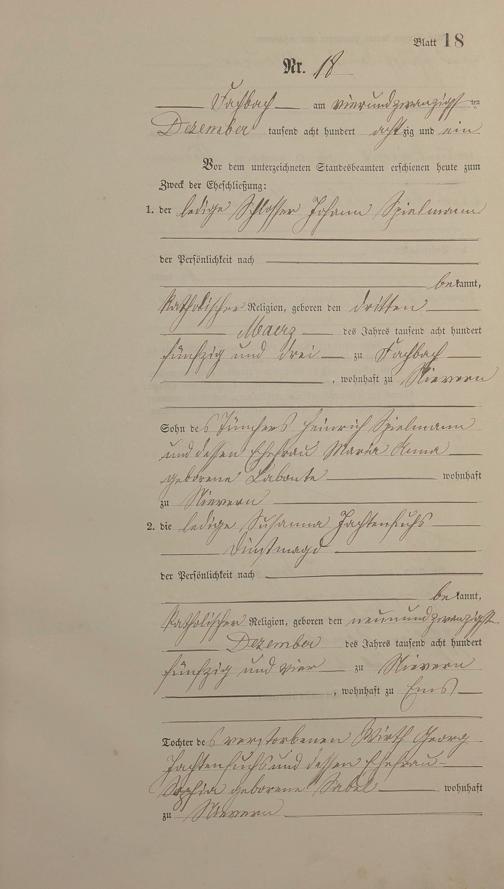 Blatt 18
Nr. 18
Fachbach am vierundzwanzigsten
Dezember tausend acht hundert achtzig und ein
Vor dem unterzeichneten Standesbeamten erschienen heute zum
Zweck der Eheschließung:
1. der ledige Schlosser Johann Spielmann
der Persönlichkeit nach
bekannt,
katholischer Religion, geboren den dritten
Maerz des Jahres tausend acht hundert
fünfzig und drei zu Fachbach
, wohnhaft zu Nievern
Sohn des Tünchers Heinrich Spielmann
und dessen Ehefrau Maria Anna
geborene Labonte wohnhaft
zu Nievern
2. die ledige Susanna Jachtenfuchs
Dinstmagd
der Persönlichkeit nach
bekannt,
katholischer Religion, geboren den neunundzwanzigsten
Dezember des Jahres tausend acht hundert
fünfzig und vier zu Nievern
, wohnhaft zu Ems
Tochter des verstorbenen Wirth Georg
Jachtenfuchs und dessen Ehefrau
Sophia geborene Sabel wohnhaft
zu Nievern